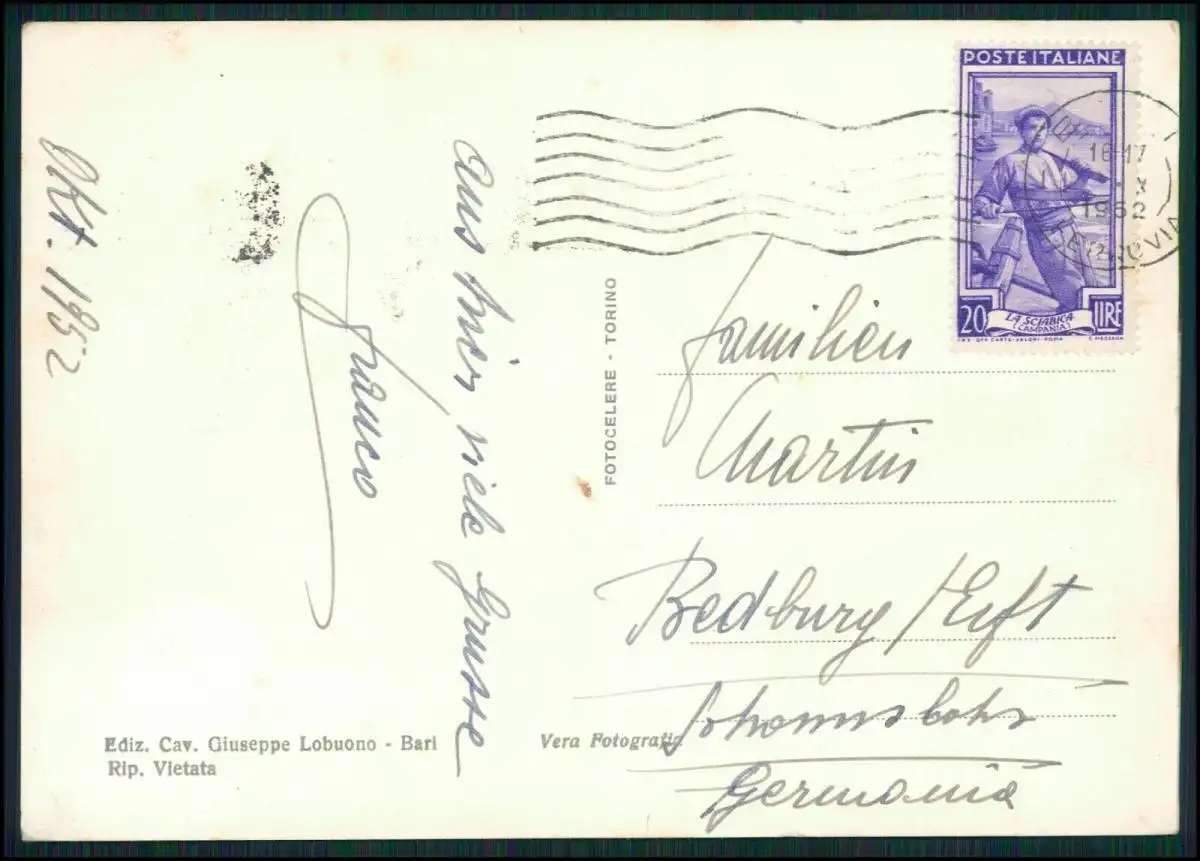 Okt. 1952
aus hier viele Grüsse
Franco
Ediz. Cav. Giuseppe Lobuono - Bari
Rip. Vietata
FOTOCELERE - TORINO
Vera Fotografia
POSTE ITALIANE
20 LIRE
LA SCIABICA
(CAMPANIA)
16-17
X
1952
FERROVIA
Familien
Martin
Bedburg/Erft
Germania